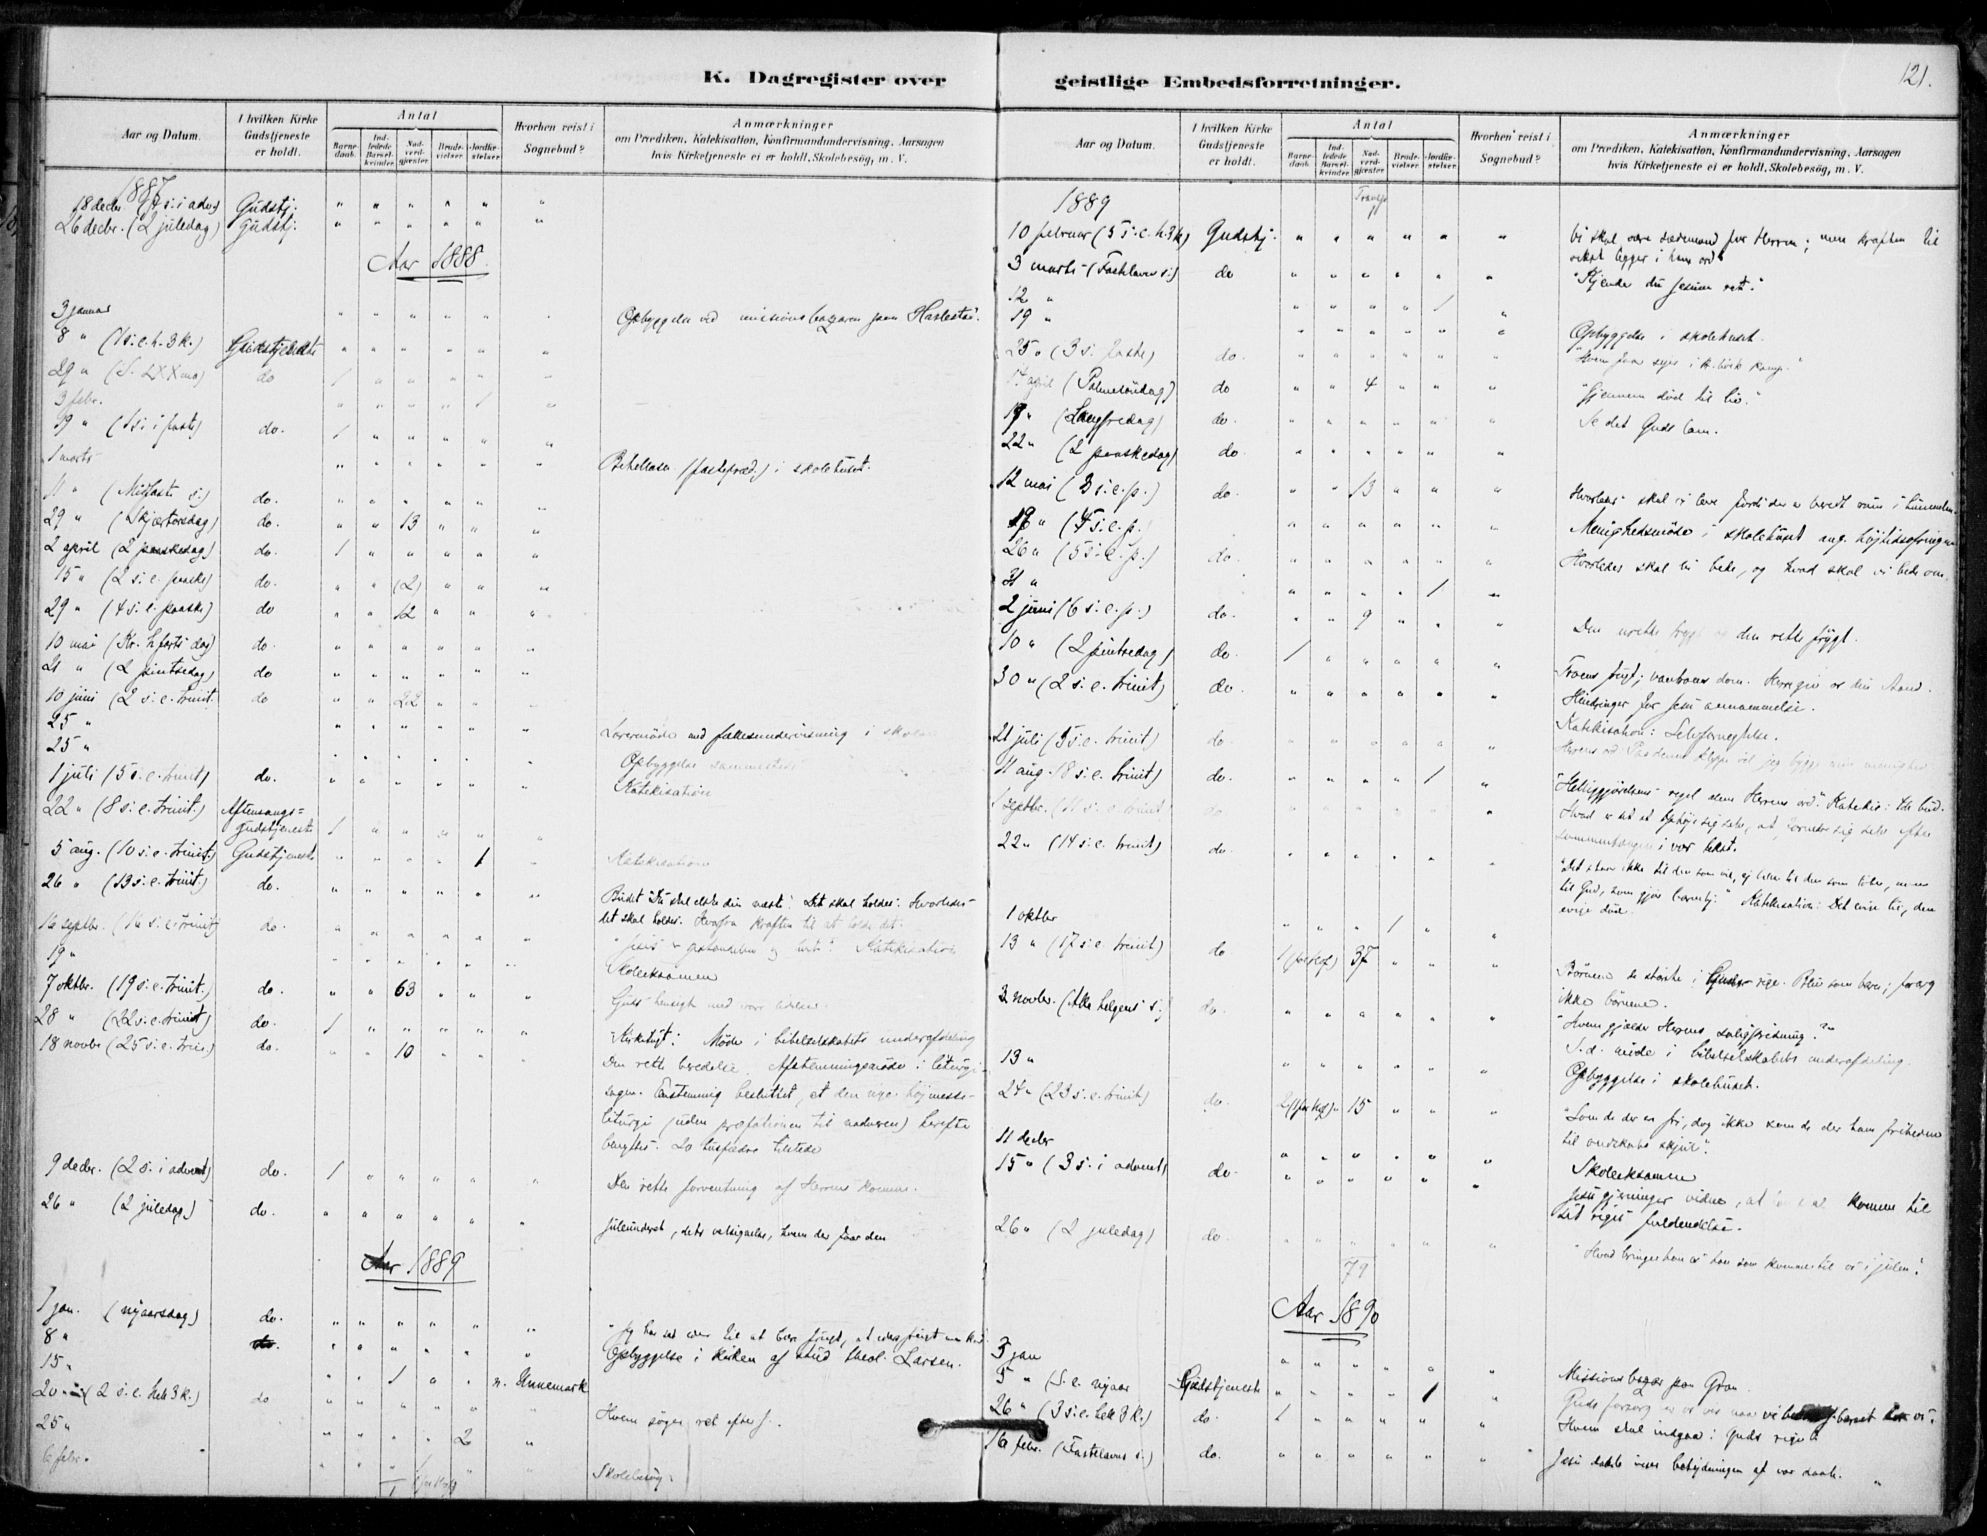 K. Dagregister over
Aar og Datum.
I hvilken Kirke Gudstjeneste er holdt.
Antal
Barne-daab.
Ind-ledede Barsel-kvinder.
Nad-verd-gjæster.
Brude-vielser.
Jordfæ-stelser.
Hvorhen reist i Sognebud?
Anmærkninger
om Prædiken, Katekisation, Konfirmandundervisning, Aarsagen
hvis Kirketjeneste ei er holdt, Skolebesög, m. V.
1887
18 decbr (4 s. i adv.) Gudstj. " " " " " "
26 decbr. (2 juledag) Gudstj. " " " " " "
Aar 1888
3 januar " " " " " " Opbyggelse ved missionsbazaren paa
8 " (1 s. e. h. 3 k.) Gudstjeneste " " " " " "
29 " (S. LXXma) do 1 " " " " "
3 febr. " " " " 1 "
19 " (1 s. i faste) do. 1 " " " " "
1 marts " " " " " " Bibellæsn. (fastepræd.) i skolehuset.
11 " (Midfaste s.) do. " " " " " "
29 " (Skjærtorsdag) do. " " 13 " " "
2 april (2 paaskedag) do. 1 " " " " "
15 " (2 s. e. paaske) do. " " (2) " " "
29 " (4 s. e. paaske) do " " 12 " " "
10 mai (Kr. h.farts dag) do. " " " " " "
21 " (2 pintsedag) do " " " " " "
10 juni (2 s. e. trinit. do " " 22 " " "
25 " " " " " " " Lærermøde med fællesundervisning i
25 " " " " " " " Opbyggelse sammesteds
1 juli (5 s. e. trinit) do. " " " " " " Katekisation
22 " (8 s. e. trinit.) Aftensangs=
gudstjeneste 1 " " " " "
5 aug. (10 s. e. trinit.) Gudstjeneste " " " " 1 " Katekisation
26 " (13 s. e. trinit.) do. " " " " " " Budet "Du skal elske din næste". Det skal holdes. Hvorledes
det skal holdes. Hvorfra kraften til at holde det.
16 septbr. (16 s. e. trinit) do. " " " " " " Katekisation
19 " " " " " " " Skoleeksamen
7 oktbr. (19 s. e. trinit.) do. " " 63 " " " Guds hensigt med vore lidelser.
28 " (22 s. e. trinit) do. 1 " " " " " "Kirketugt". Møde i bibelselskabets underafdeling
18 novbr (25 s. e. trin.) do. " " 10 " " " Den rette beredelse. Afstemningsmøde i liturgi-
sagen. Enstemmig besluttet, at den nye høimesse-
liturgi (uden præfationen til nadveren) herefter
benyttes. 20 husfædre tilstede
9 decbr. (2 s. i advent) do. 1 " " " " " Den rette forventning af Herrens komme.
26 " (2 juledag) do. " " " " " " Juleunderet, dets velsignelse, hvem der faar den
Aar 1889
1 jan. (nyaarsdag) do. " " " " " " "Jeg har sat eder til at bære frugt,
8 " " " " " " " Opbyggelse i kirken af stud. theol. Larsen.
15 " " " 1 " " n. Unnemark
20 " (2 s. e. hel 3 k.) do " " " " " " Hvem søger ret efter J.
25 " " " " " 2 "
6 febr. " Skolebesøg.
geistlige Embedsforretninger.
121.
Aar og Datum.
I hvilken Kirke Gudstjeneste er holdt.
Antal
Barne-daab.
Ind-ledede Barsel-kvinder.
Nad-verd-gjæster.
Brude-vielser.
Jordfæ-stelser.
Hvorhen reist i Sognebud?
Anmærkninger
om Prædiken, Katekisation, Konfirmandundervisning, Aarsagen
hvis Kirketjeneste ei er holdt, Skolebesög, m. V.
1889
10 februar (5 s. e. h. 3 k) Gudstj. " " " " " " Vi skal være sædemænd for Herren; men kraften til
vekst ligger i hans ord
3 marts (Fastelavns s.) do " " " " " " "Kjender du Jesum ret."
12 " " " " " 1 "
19 " " " " " " " Opbyggelse i skolehuset.
25 " (3 s. faste) do. " " " " " "
14 april (Palmesøndag) do " " 4 " " " "Gjennem død til liv."
19 " (Langfredag) do. " " " " " " Se det Guds lam.
22 " (2 paaskedag) do. " " " " " "
12 mai (3 s. e. p.) do. " " 13 " " " Hvorledes skal vi leve fordi der er beredt rum i himmelen.
19 " (4 s. e. p.) " " " " " " Menighedsmøde i skolehuset ang. høitidsofringen
26 " (5 s. e. p.) do. " " " " " " Hvorledes skal vi bede, og hvad skal vi bede om.
31 " " " " " 1 "
2 juni (6 s. e. p.) do. " " 9 " " " Den urette frygt og den rette frygt.
10 " (2 pintsedag) do. 1 " " " " "
30 " (2 s. e. trinit) do. " " " " " " Hindringer for Jesu annammelse.
21 juli (5 s. e. trinit) do. " " " " " " Katekisation: Selvfornegtelse.
11 aug. (8 s. e. trinit) do. " " " " 1 " "Helliggjørelsens regel
1 septbr. (11 s. e. trinit do " " " " " " Hvad er det at ophøie sig selv, at fornedre sig selv efter
sammenhængen i vor tekst.
22 " (14 s. e. trinit) do. " " " " " " "Det staar ikke til den som vil, ei heller til den som løber, men
til Gud, som gjør barmhj." Katekisation: Det evige liv, den
evige død.
1 oktbr " " " 1 " "
13 " (17 s. e. trinit) do 1 37 " " " Børnene de største i Guds rige. Bliv som barn; forarg
ikke børnene.
3 novbr. (Alle helgens s.) do. " " " " " " "Hvem gjælder Herrens saligprisning?"
S. d. møde i bibelselskabets underafdeling.
13 " " " " " " " Opbyggelse i skolehuset.
24 " (23 s. e. trinit) do. 15 " " " "Som de der er fri, dog ikke som de der have friheden
til ondskabs skjul".
11 decbr " " " " " " Skoleeksamen
15 " (3 s. i advent) do. " " " " " " Jesu gjerninger vidne, at komme til
sit riges fuldendelse.
26 " (2 juledag) do. " " " " " " "Hvad bringer han os han som kommer til os i julen".
79
Aar 1890
3 jan " " " " " " Missionsbazar paa Gron.
5 " (S. e. nyaar Gudstjeneste " " " " 1 "
26 " (3 s. e. hel 3 k.) do. 1 " " " " " Hvem skal indgaa i Guds rige?
16 febr. (Fastelavns s.) do. " " " " " " Jesu daab viser betydningen af vor daab.